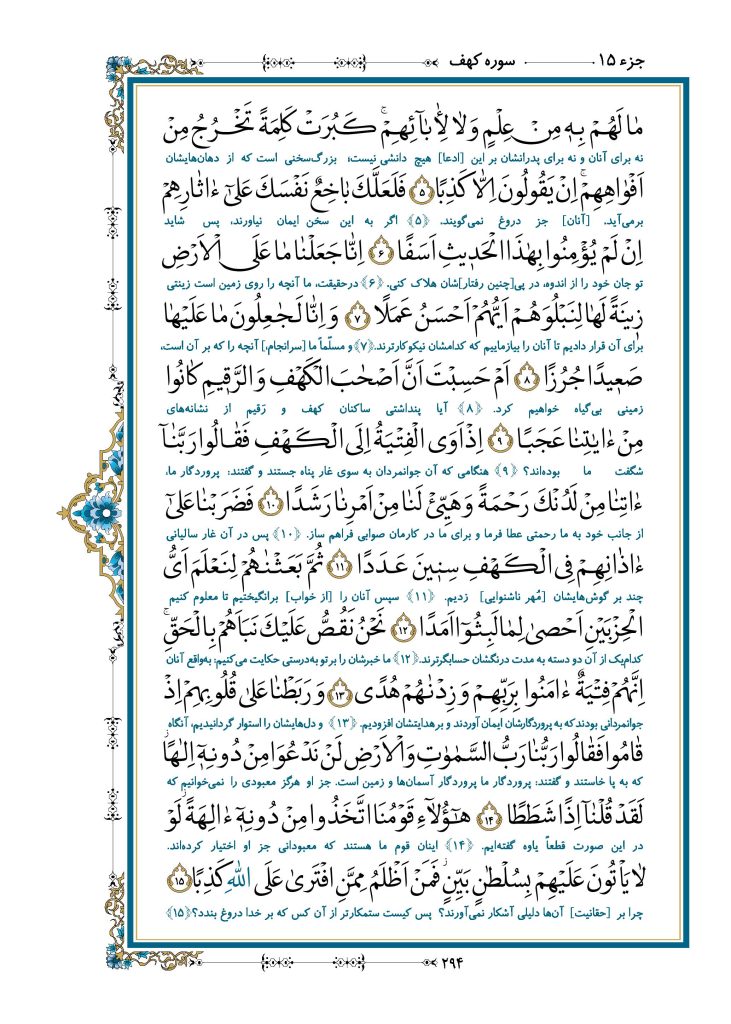 جزء ۱۵ سوره کهف
مَا لَهُمْ بِهِ مِنْ عِلْمٍ وَلَا لِأَبَآئِهِمْ ۚ كَبُرَتْ كَلِمَةً تَخْرُجُ مِنْ
نه برای آنان و نه برای پدرانشان بر این [ادعا] هیچ دانشی نیست؛ بزرگ‌سخنی است که از دهان‌هایشان
اَفْوَاهِهِمْ ۚ اِنْ يَقُولُونَ اِلَّا كَذِبًا ﴿۵﴾ فَلَعَلَّكَ بَاخِعٌ نَفْسَكَ عَلَىٰٓ ءَاثَارِهِمْ
برمی‌آید. [آنان] جز دروغ نمی‌گویند. ﴿۵﴾ اگر به این سخن ایمان نیاورند، پس شاید
اِنْ لَمْ يُؤْمِنُوا بِهَٰذَا الْحَدِيثِ اَسَفًا ﴿۶﴾ اِنَّا جَعَلْنَا مَا عَلَى الْاَرْضِ
تو جان خود را از اندوه، در پی[چنین رفتار]شان هلاک کنی. ﴿۶﴾ درحقیقت، ما آنچه را روی زمین است زینتی
زِينَةً لَهَا لِنَبْلُوَهُمْ اَيُّهُمْ اَحْسَنُ عَمَلًا ﴿۷﴾ وَ اِنَّا لَجَٰعِلُونَ مَا عَلَيْهَا
برای آن قرار دادیم تا آنان را بیازماییم که کدامشان نیکوکارترند.﴿۷﴾و مسلّماً ما [سرانجام،] آنچه را که بر آن است،
صَعِيدًا جُرُزًا ﴿۸﴾ اَمْ حَسِبْتَ اَنَّ اَصْحَٰبَ الْكَهْفِ وَالرَّقِيمِ كَانُوا
زمینی بی‌گیاه خواهیم کرد. ﴿۸﴾ آیا پنداشتی ساکنان کهف و رَقیم از نشانه‌های
مِنْ ءَايَٰتِنَا عَجَبًا ﴿۹﴾ اِذْ اَوَى الْفِتْيَةُ اِلَى الْكَهْفِ فَقَالُوا رَبَّنَآ
شگفت ما بوده‌اند؟ ﴿۹﴾ هنگامی که آن جوانمردان به سوی غار پناه جستند و گفتند: پروردگار ما،
ءَاتِنَا مِنْ لَدُنْكَ رَحْمَةً وَهَيِّئْ لَنَا مِنْ اَمْرِنَا رَشَدًا ﴿۱۰﴾ فَضَرَبْنَا عَلَىٰٓ
از جانب خود به ما رحمتی عطا فرما و برای ما در کارمان صوابی فراهم ساز. ﴿۱۰﴾ پس در آن غار سالیانی
ءَاذَانِهِمْ فِى الْكَهْفِ سِنِينَ عَدَدًا ﴿۱۱﴾ ثُمَّ بَعَثْنَٰهُمْ لِنَعْلَمَ اَىُّ
چند بر گوش‌هایشان [مُهر ناشنوایی] زدیم. ﴿۱۱﴾ سپس آنان را [از خواب] برانگیختیم تا معلوم کنیم
الْحِزْبَيْنِ اَحْصَىٰ لِمَا لَبِثُوٓا اَمَدًا ﴿۱۲﴾ نَحْنُ نَقُصُّ عَلَيْكَ نَبَاَهُمْ بِالْحَقِّ ۚ
کدام‌یک از آن دو دسته به مدت درنگشان حسابگرترند.﴿۱۲﴾ ما خبرشان را بر تو به‌درستی حکایت می‌کنیم: به‌واقع آنان
اِنَّهُمْ فِتْيَةٌ ءَامَنُوا بِرَبِّهِمْ وَ زِدْنَٰهُمْ هُدًى ﴿۱۳﴾ وَ رَبَطْنَا عَلَىٰ قُلُوبِهِمْ اِذْ
جوانمردانی بودند که به پروردگارشان ایمان آوردند و بر هدایتشان افزودیم. ﴿۱۳﴾ و دل‌هایشان را استوار گردانیدیم، آنگاه
قَامُوا فَقَالُوا رَبُّنَا رَبُّ السَّمَٰوَٰتِ وَالْاَرْضِ لَنْ نَدْعُوَا مِنْ دُونِهِٓ اِلَٰهًا ۖ
که به پا خاستند و گفتند: پروردگار ما پروردگار آسمان‌ها و زمین است. جز او هرگز معبودی را نمی‌خوانیم که
لَقَدْ قُلْنَآ اِذًا شَطَطًا ﴿۱۴﴾ هَٰٓؤُلَآءِ قَوْمُنَا اتَّخَذُوا مِنْ دُونِهِٓ ءَالِهَةً ۖ لَوْ
در این صورت قطعاً یاوه گفته‌ایم. ﴿۱۴﴾ اینان قوم ما هستند که معبودانی جز او اختیار کرده‌اند.
لَا يَاْتُونَ عَلَيْهِمْ بِسُلْطَٰنٍ بَيِّنٍ ۖ فَمَنْ اَظْلَمُ مِمَّنِ افْتَرَىٰ عَلَى اللهِ كَذِبًا ﴿۱۵﴾
چرا بر [حقانیت] آن‌ها دلیلی آشکار نمی‌آورند؟ پس کیست ستمکارتر از آن کس که بر خدا دروغ بندد؟﴿۱۵﴾
۲۹۴